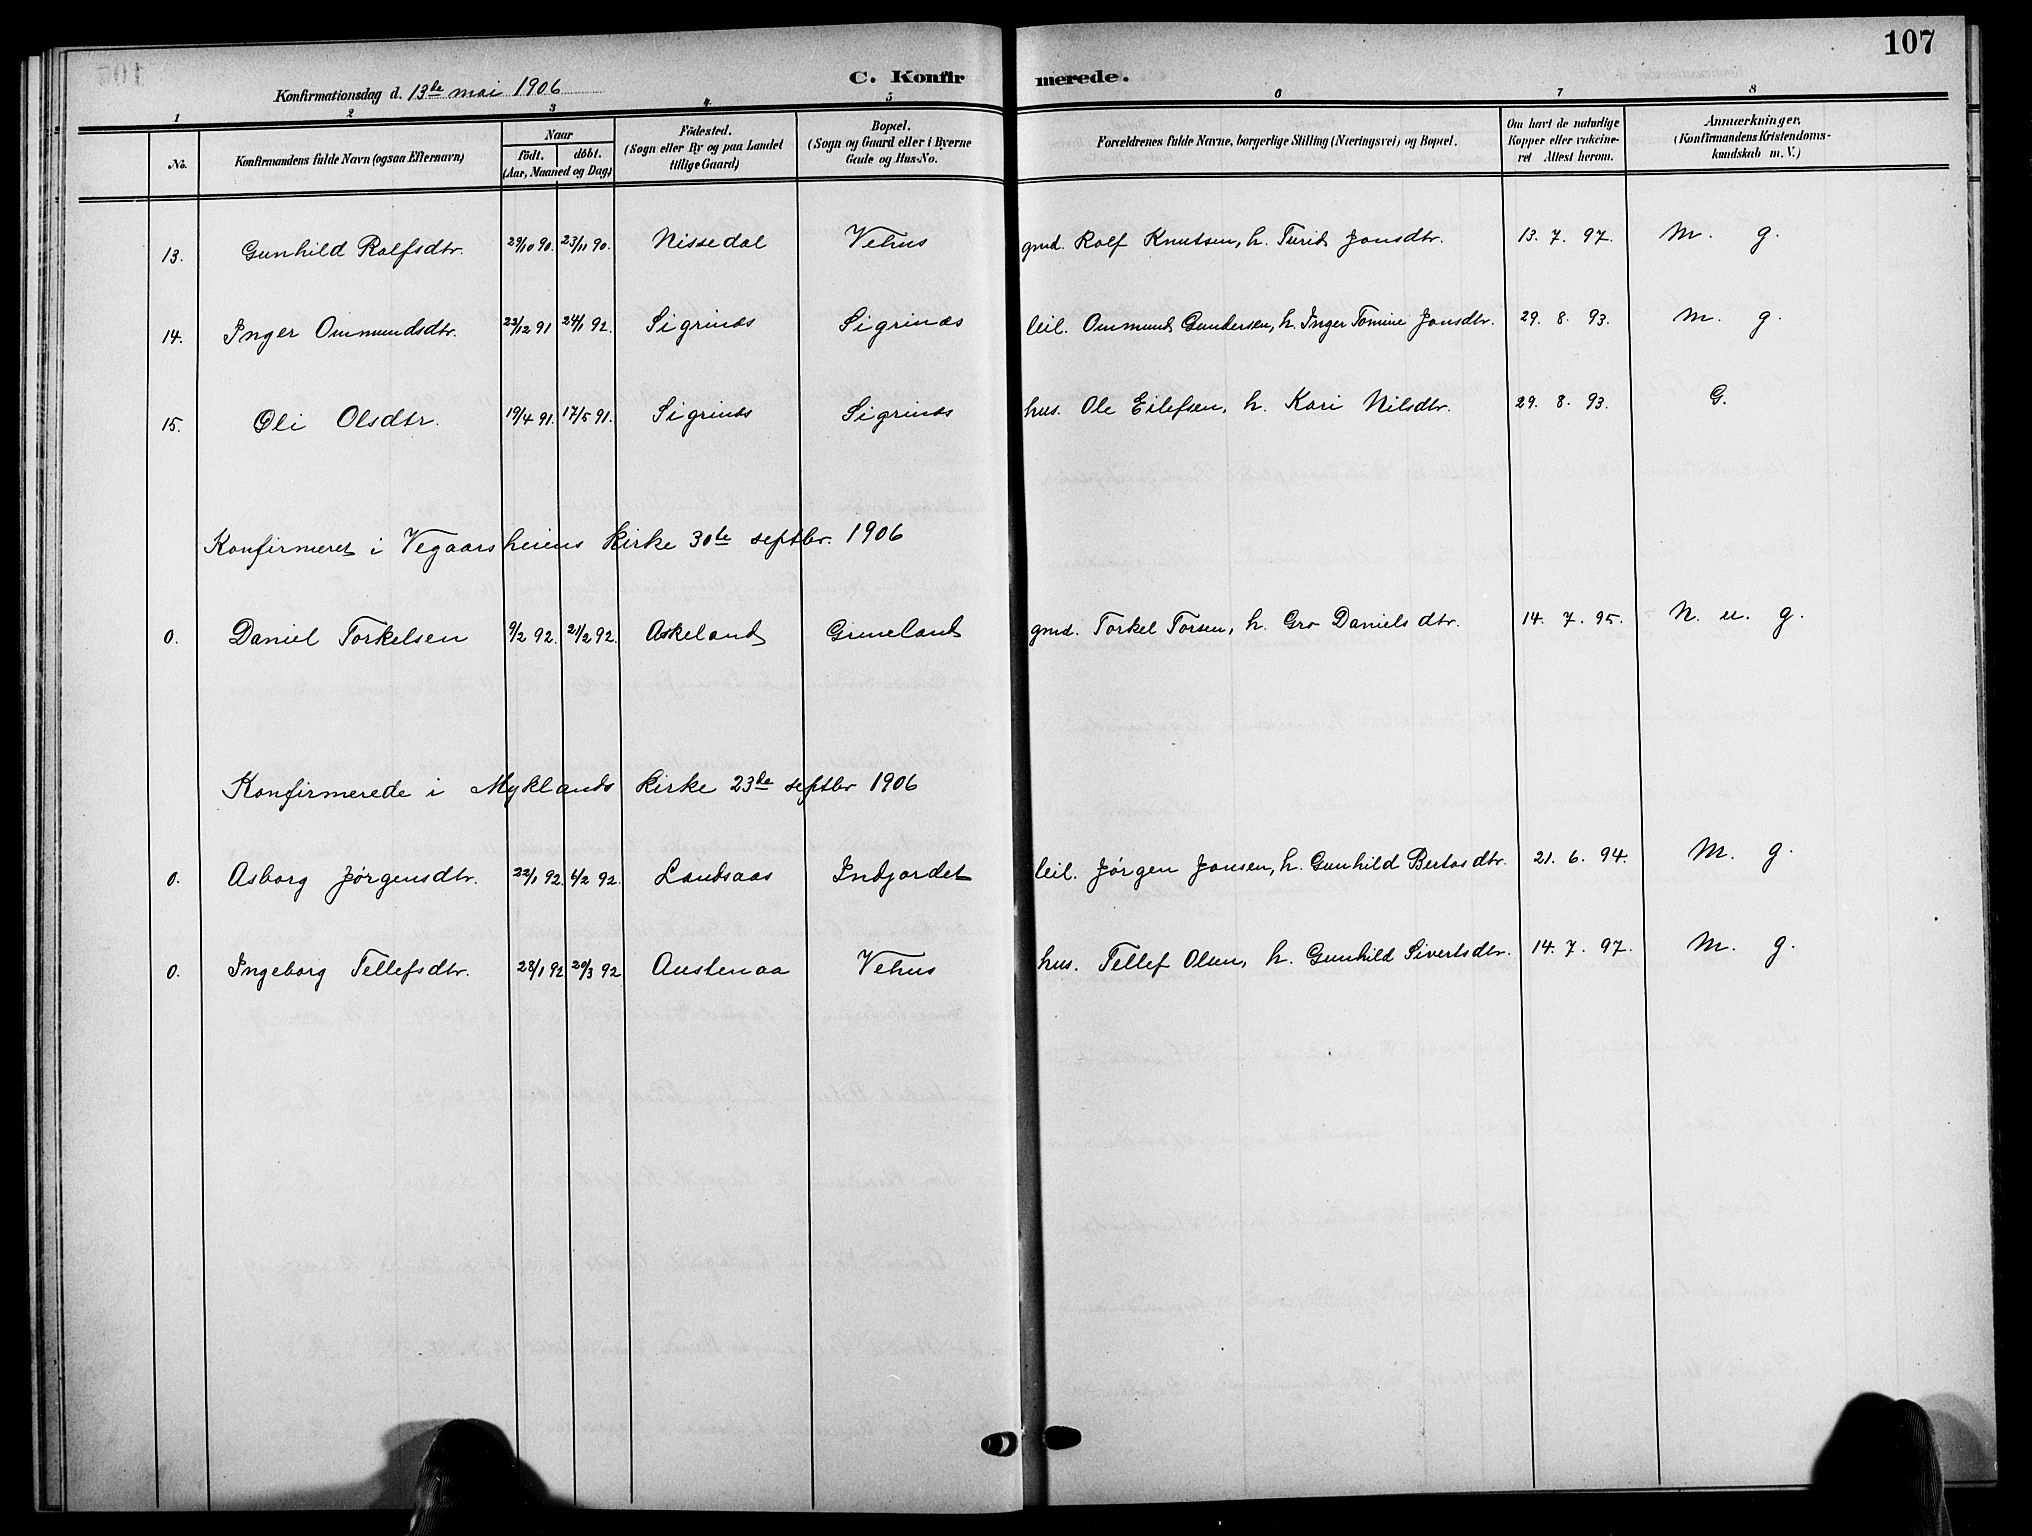 107
C. Konfirmerede.
Konfirmationsdag d. 13de mai 1906
1 2 3 4 5 6 7 8
No. Konfirmandens fulde Navn (ogsaa Efternavn) Naar födt. döbt. (Aar, Maaned og Dag) Födested. (Sogn eller By og paa Landet tillige Gaard) Bopæl. (Sogn og Gaard eller i Byerne Gade og Hus-No. Forældrenes fulde Navne, borgerlige Stilling (Næringsvei) og Bopæl. Om havt de naturlige Kopper eller vakcineret Attest herom. Anmærkninger. (Konfirmandens Kristendomskundskab m. V.)
13. Gunhild Rolfsdtr. 29/10 90. 23/11 90. Nissedal Vehus gmd. Rolf Knutsen, h. Turid Jonsdtr. 13. 7. 97. M. g.
14. Inger Ommundsdtr. 22/12 91 24/1 92. Sigrinæs Sigrinæs leil. Ommund Gundersen, h. Inger Tomine Jonsdtr. 29. 8. 93. M. g.
15. Oli Olsdtr. 19/4 91. 17/5 91. Sigrinæs Sigrinæs hus. Ole Eilefsen, h. Kari Nilsdtr. 29. 8. 93. G.
Konfirmeret i Vegaarsheiens kirke 30te septbr. 1906
0. Daniel Torkelsen 9/2 92. 21/2 92. Askeland Grimeland gmd. Torkel Torsen, h. Gro Danielsdtr. 14. 7. 95. N. u. g.
Konfirmerede i Myklands kirke 23de septbr 1906
0. Asborg Jørgensdtr. 22/1 92. 6/2 92. Landsaas Indjordet leil. Jørgen Jonsen, h. Gunhild Bertosdtr. 21. 6. 94. M. g.
0. Ingeborg Tellefsdtr. 28/1 92 20/3 92 Austenaa Vehus hus. Tellef Olsen, h. Gunhild Sivertsdtr. 14. 7. 97. M. g.